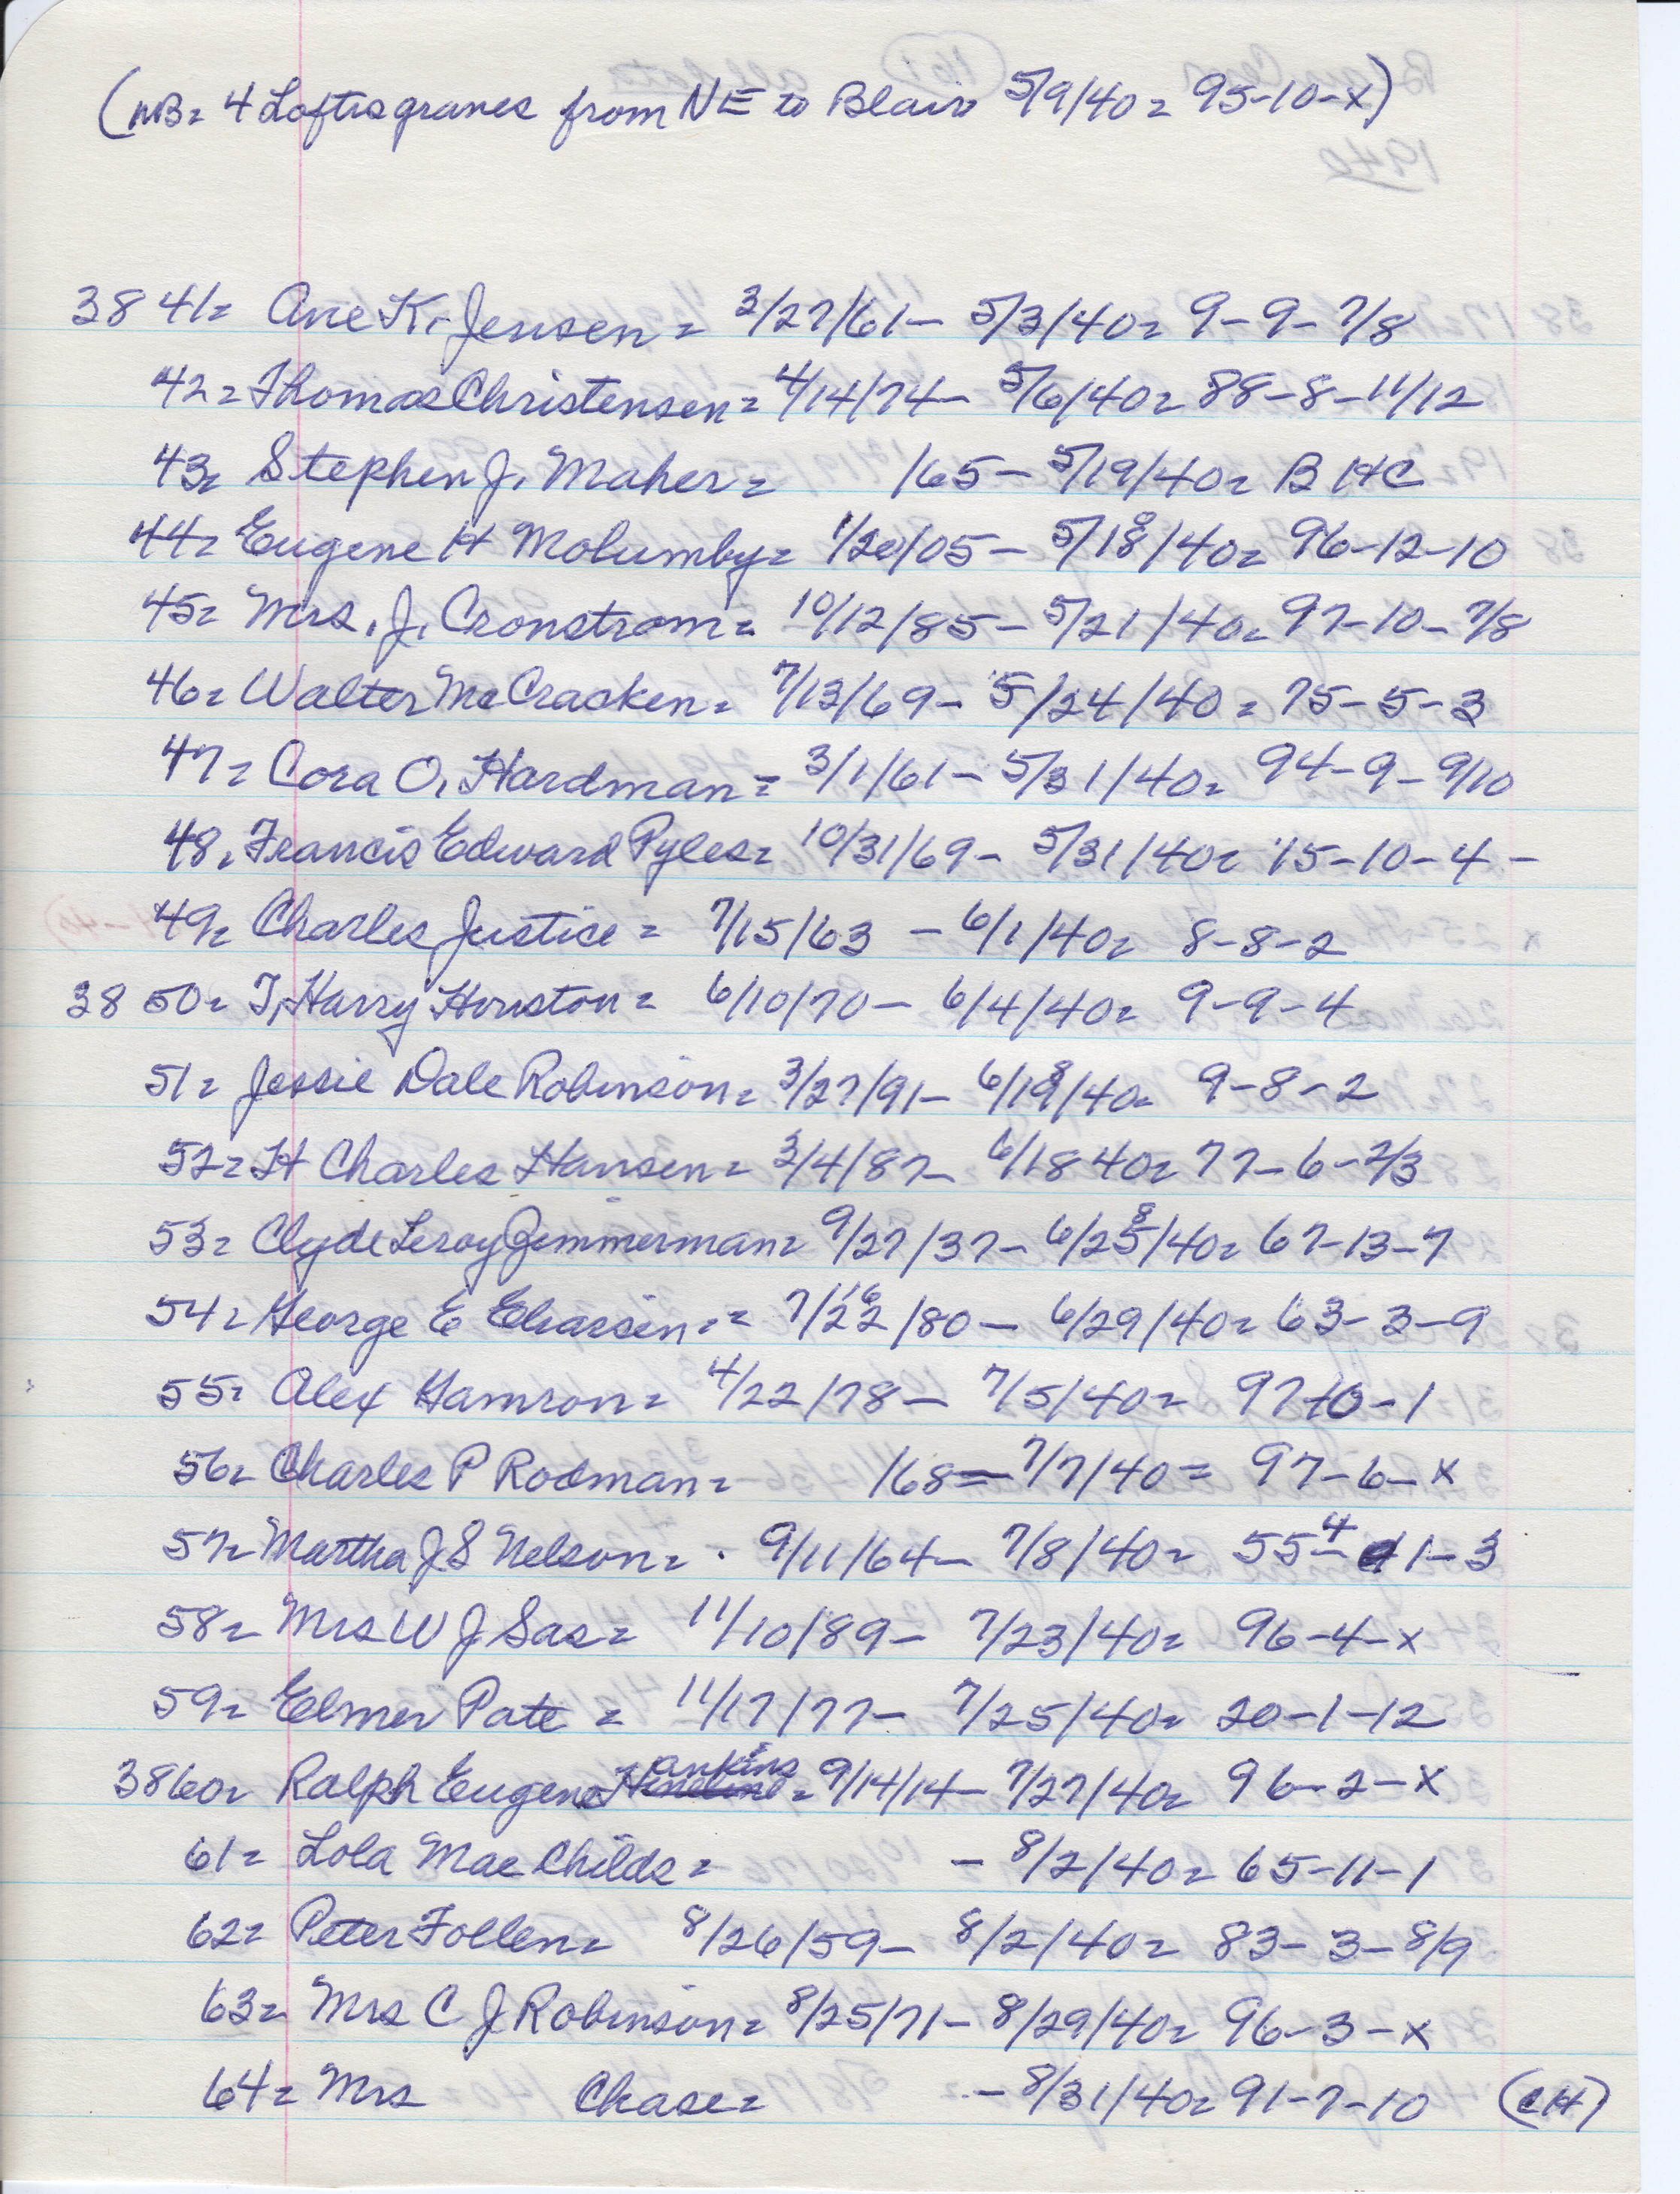 (NB= 4 Loftis graves from NE to Blair 5/9/40= 95-10-x)
38 41= Ane K. Jensen= 3/27/61- 5/3/40= 9-9-7/8
42= Thomas Christensen= 4/14/74- 5/6/40= 88-8-11/12
43= Stephen J. Maher= /65- 5/19/40= B HC
44= Eugene H Molumby= 1/20/05- 5/18/40= 96-12-10
45= Mrs. J. Cronstrom= 10/12/85- 5/21/40= 97-10-7/8
46= Walter McCracken= 7/13/69- 5/24/40= 75-5-3
47= Cora O. Hardman= 3/1/61- 5/31/40= 94-9-9/10
48= Francis Edward Pyles= 10/31/69- 5/31/40= 15-10-4-
49= Charles Justice= 7/15/63 - 6/1/40= 8-8-2
38 50= T, Harry Houston= 6/10/70- 6/4/40= 9-9-4
51= Jessie Dale Robinson= 3/27/91- 6/18/40= 9-8-2
52= H Charles Hansen= 3/4/87- 6/18 40= 77-6-2/3
53= Clyde Leroy Zimmerman= 9/27/37- 6/28/40= 67-13-7
54= George E = 7/26/80- 6/29/40= 63-3-9
55= Alex Hamron= 4/22/78- 7/5/40= 97-10-1
56= Charles P Rodman= /68= 7/7/40= 97-6-x
57= Martha J S Nelson= 9/11/64- 7/8/40= 554-1-3
58= Mrs W J Sas= 11/10/89- 7/23/40= 96-4-x
59= Elmer Pate= 11/17/77- 7/25/40= 20-1-12
3860= Ralph Eugene Hankins= 9/14/14- 7/27/40= 96-2-x
61= Lola Mae Childs= - 8/2/40= 65-11-1
62= Peter Follen= 8/26/59- 8/2/40= 83-3-8/9
63= Mrs C J Robinson= 8/25/71- 8/29/40= 96-3-x
64= Mrs Chase= - 8/31/40= 91-7-10 (CH)